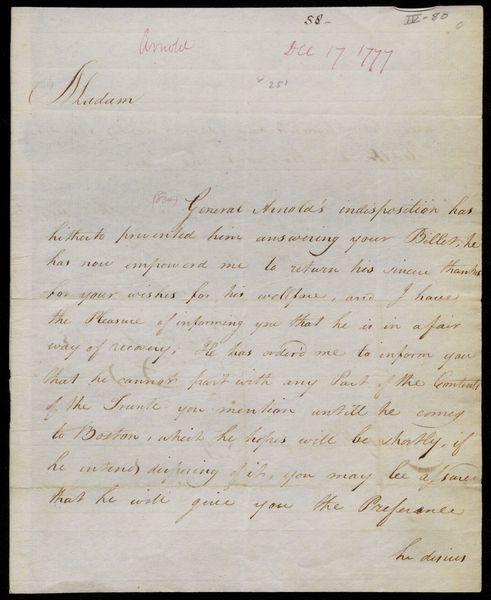 58-
IV-80
Arnold
Dec 17 1777
251
Madam
General Arnold's indisposition has
hitherto prevented him answering your Billet, he
has now empowerd me to return his sincere thanks
for your wishes for his wellfare, and I have
the Pleasure of informing you that he is in a fair
way of recovery; He has order'd me to inform you
that he cannot part with any Part of the Contents
of the Trunk you mention untill he comes
to Boston, which he hopes will be shortly, if
he intends disposing of it, you may be assured
that he will give you the Preference
he desires